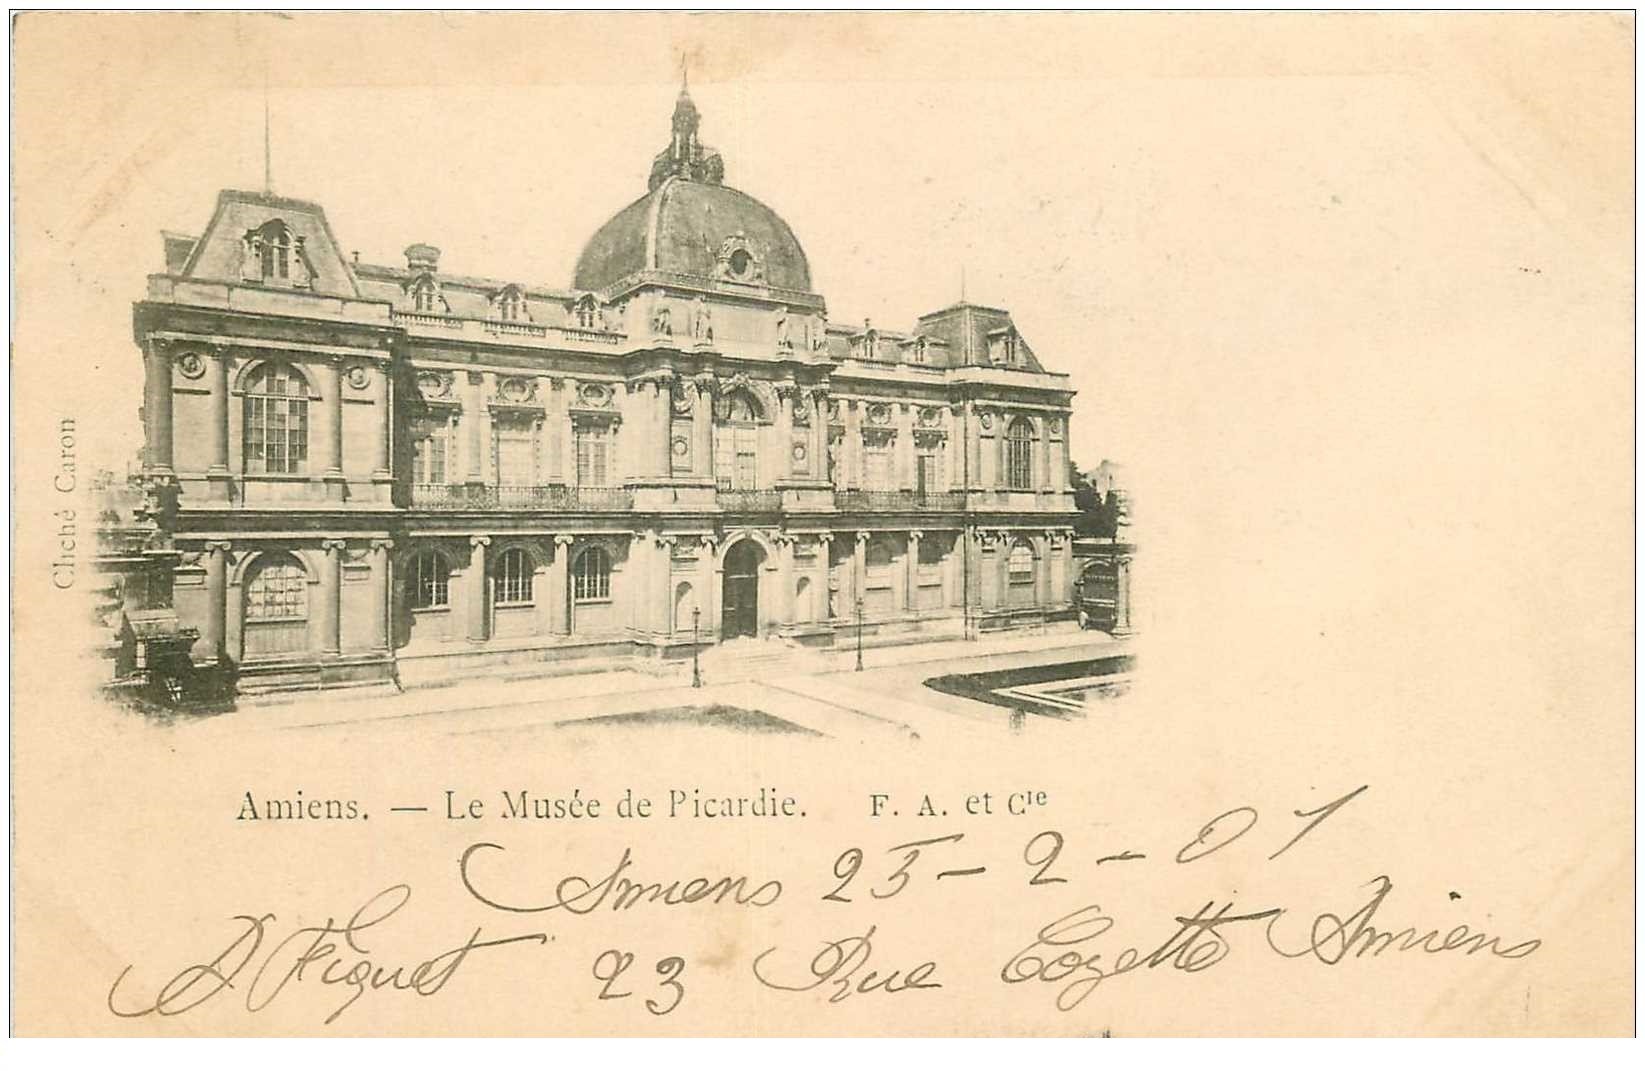 Cliché Caron
Amiens. — Le Musée de Picardie. F. A. et Cie
Amiens 25-2-01
A. Fiquet 23 Rue Cozette Amiens